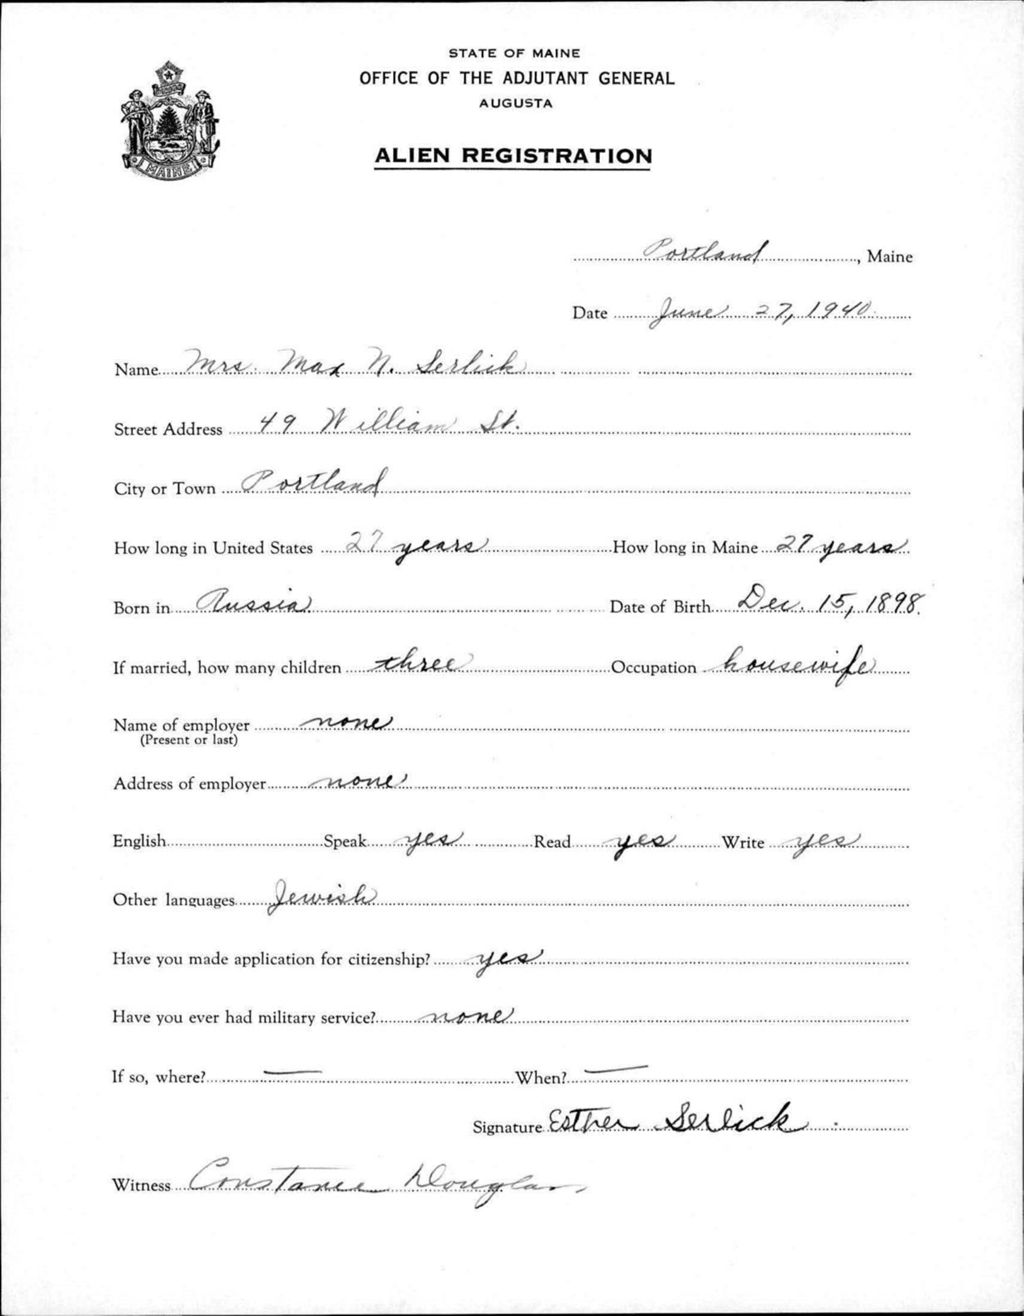 STATE OF MAINE
OFFICE OF THE ADJUTANT GENERAL
AUGUSTA
ALIEN REGISTRATION
MAINE
Portland, Maine
Date June 27, 1940
Name Mrs. Max N. Serlick
Street Address 49 William St.
City or Town Portland
How long in United States 27 years How long in Maine 27 years
Born in Russia Date of Birth Dec. 15, 1898.
If married, how many children three Occupation housewife
Name of employer none
(Present or last)
Address of employer none
English Speak yes Read yes Write yes
Other languages Jewish
Have you made application for citizenship? yes
Have you ever had military service? none
If so, where? — When? —
Signature Esther Serlick
Witness Constance Douglas